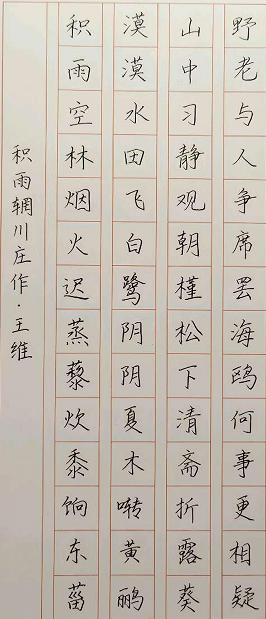 积雨辋川庄作·王维
积雨空林烟火迟蒸藜炊黍饷东菑
漠漠水田飞白鹭阴阴夏木啭黄鹂
山中习静观朝槿松下清斋折露葵
野老与人争席罢海鸥何事更相疑